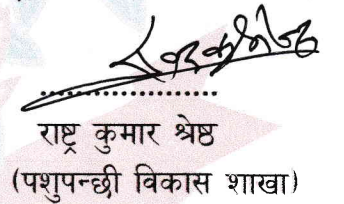 राष्ट्र कुमार श्रेष्ठ
(पशुपन्छी विकास शाखा)